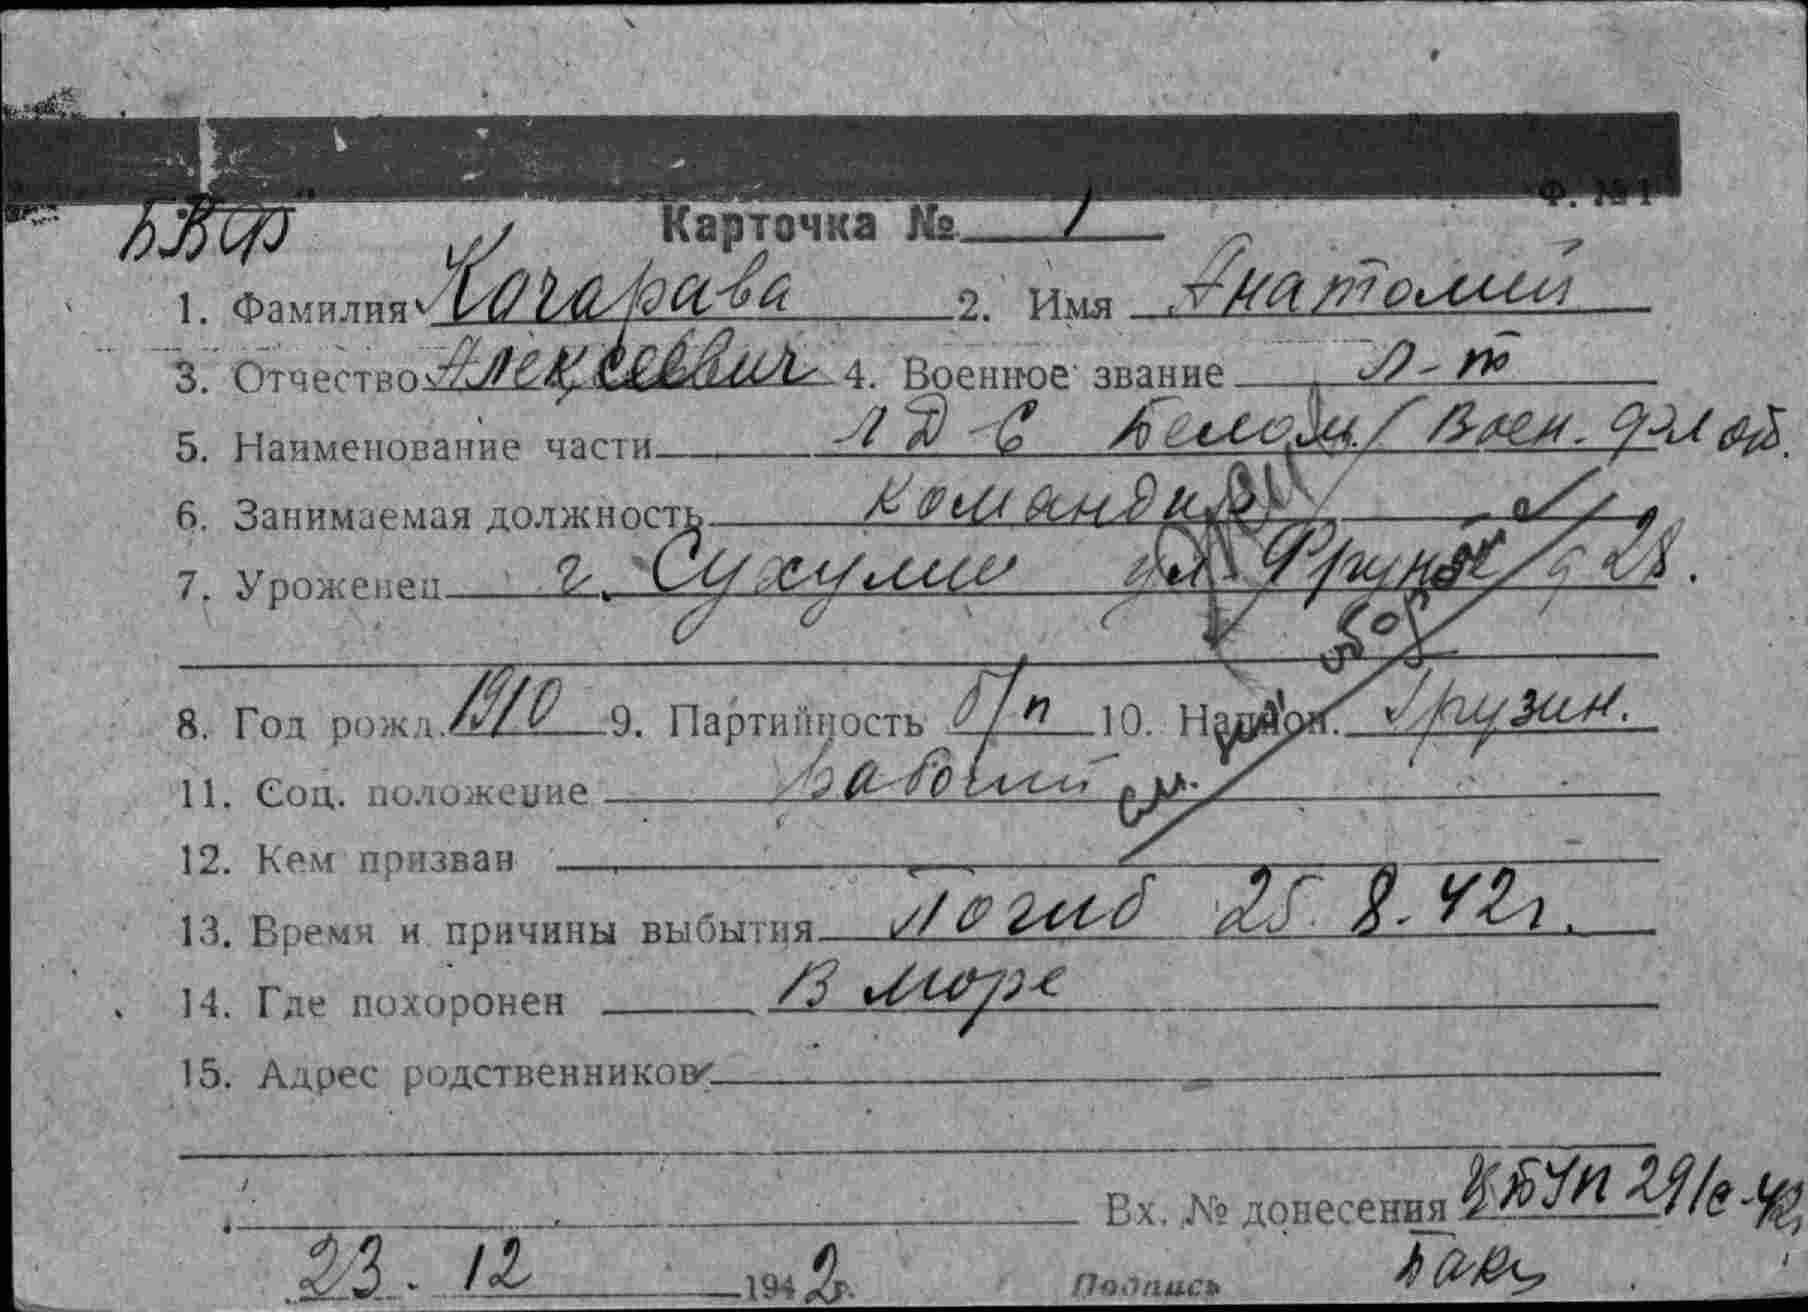 Ф. №1
БВФ
Карточка № 1
1. Фамилия Качарава 2. Имя Анатолий
3. Отчество Алексеевич 4. Военное звание л-т
5. Наименование части ЛД-6 Белом./Воен. Флот.
6. Занимаемая должность командир
7. Уроженец г. Сухуми ул. Фрунзе д 28.
8. Год рожд. 1910 9. Партийность б/п 10. Национ. Грузин.
11. Соц. положение рабочий
см.
12. Кем призван
13. Время и причины выбытия Погиб 25. 8. 42г.
14. Где похоронен в море
15. Адрес родственников
Вх. № донесения 291с-42
23. 12 1942г. Подпись